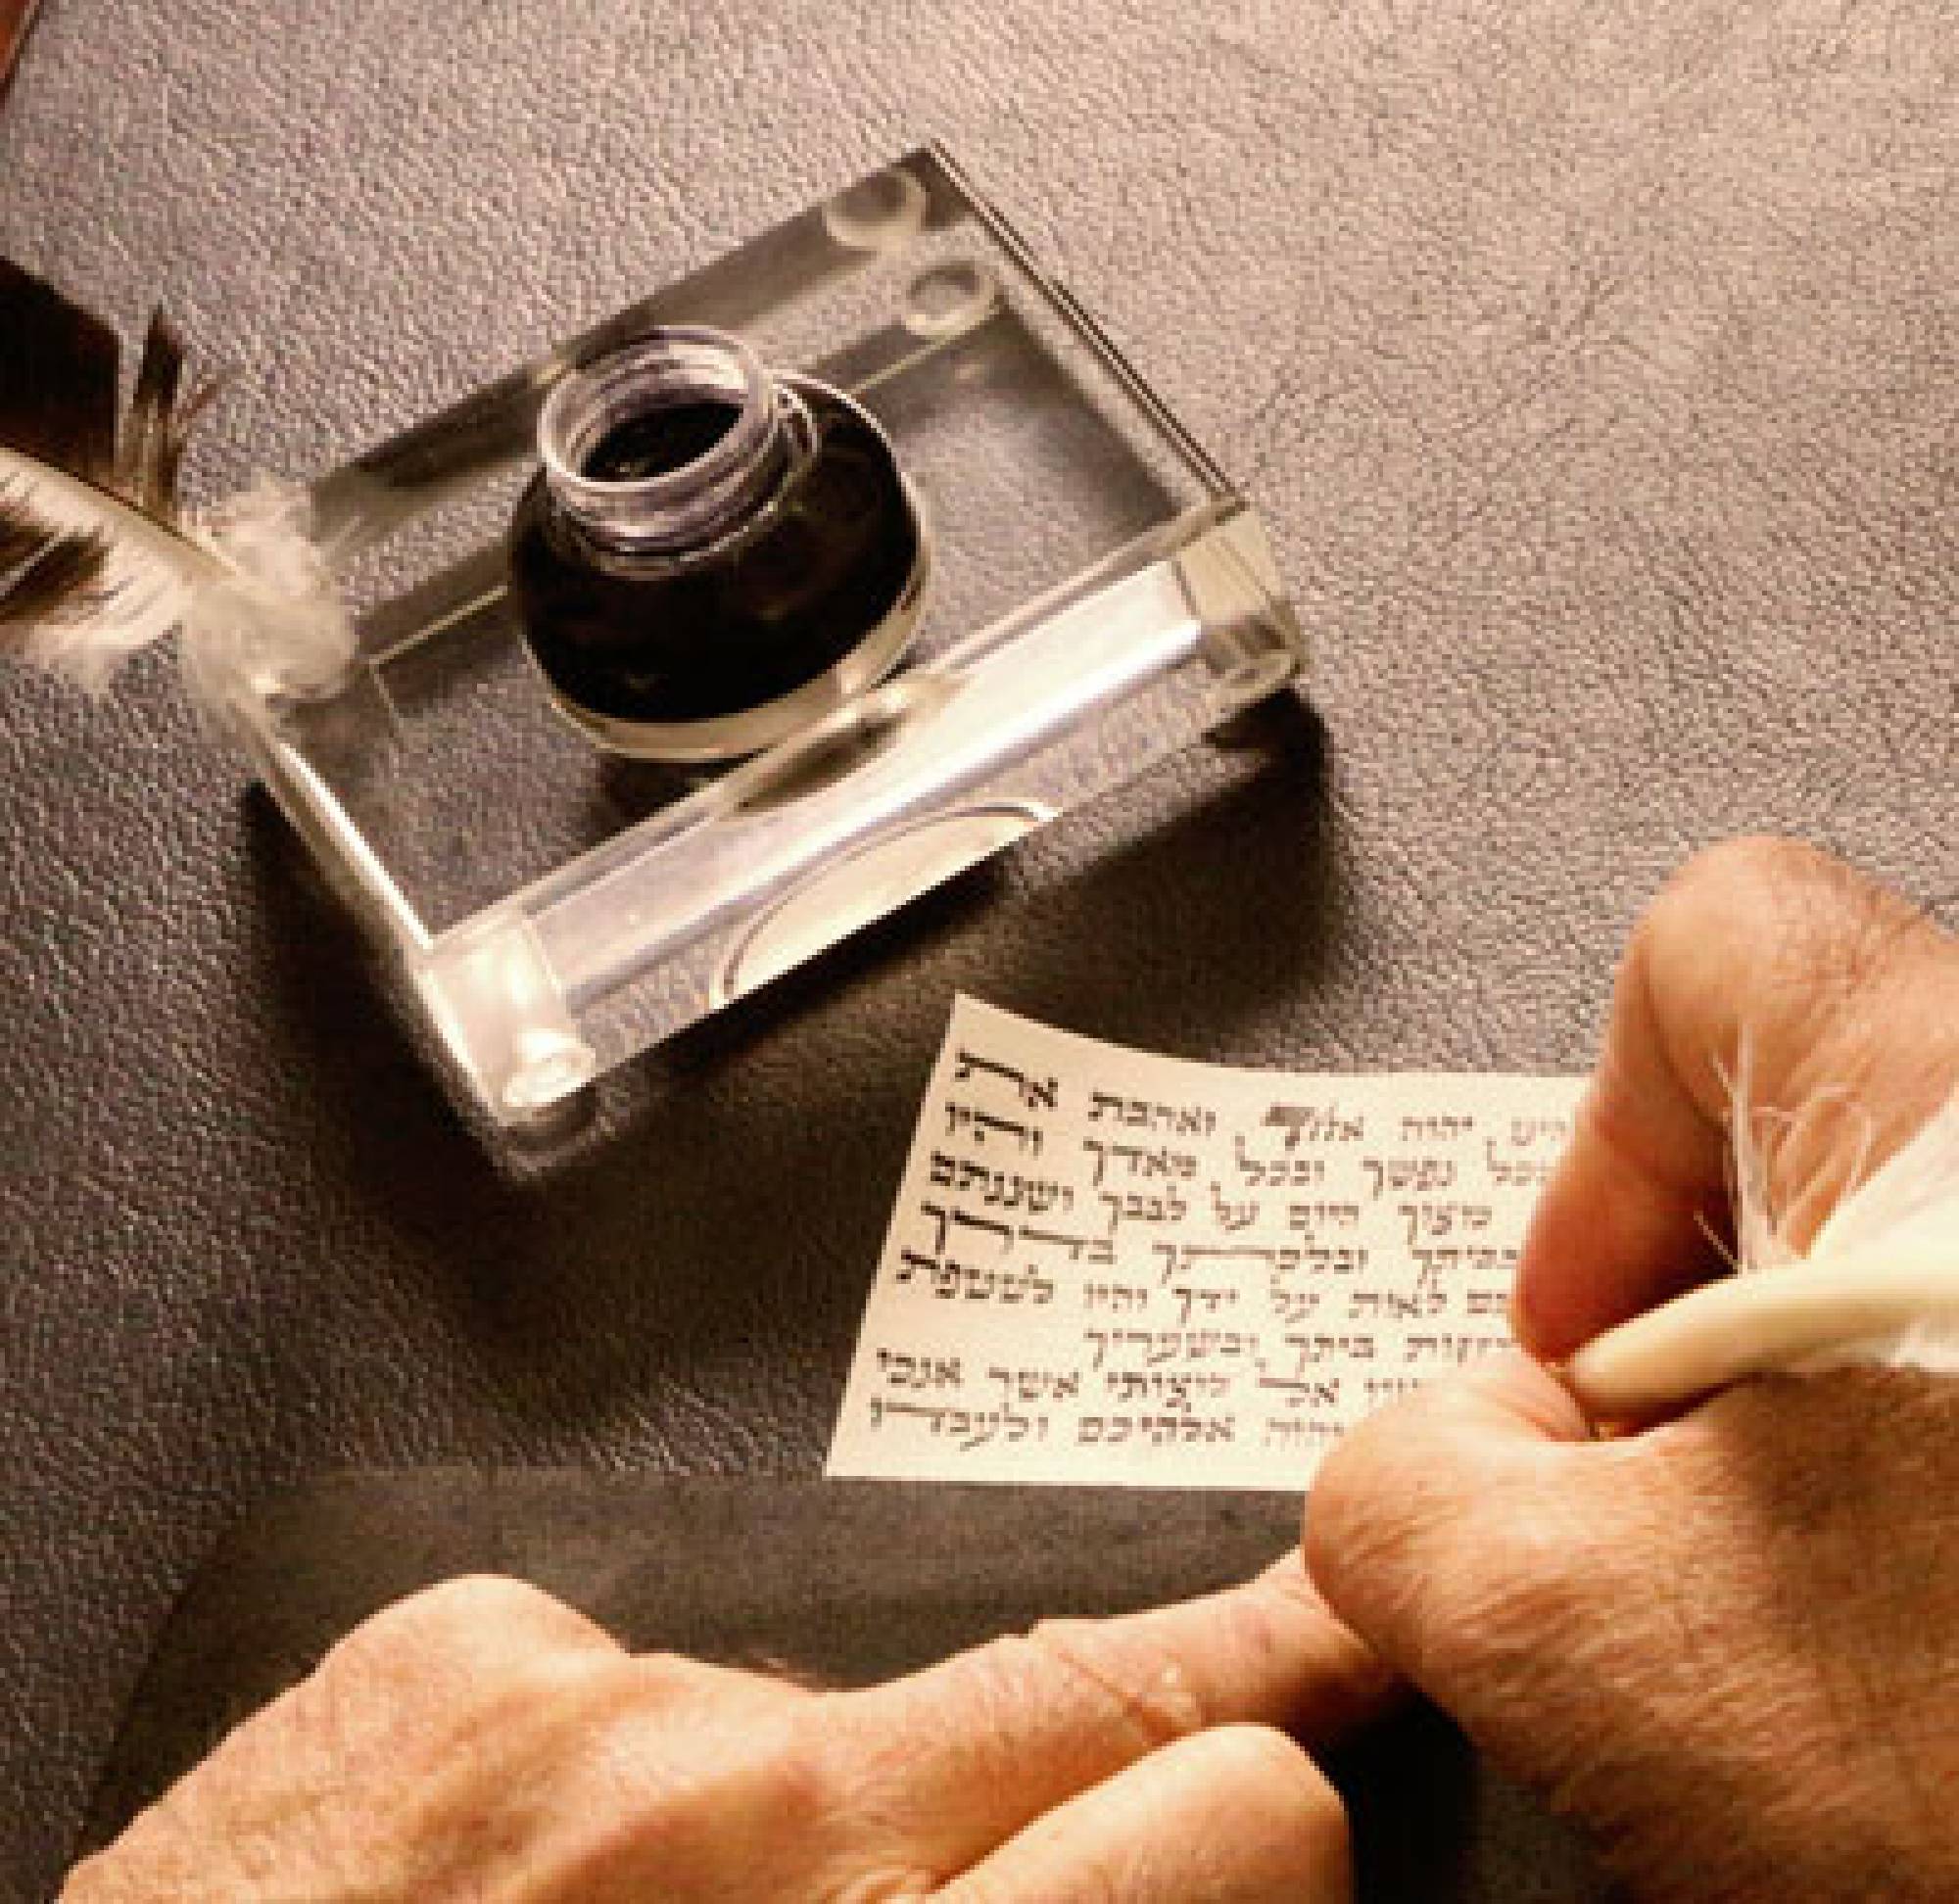 יהוה ואהבת את
נפשך ובכל מאדך והיו
מצוך היום על לבבך ושננתם
בביתך ובלכתך בדרך
לאות על ידך והיו לטטפת
ביתך ובשעריך
אל מצותי אשר אנכי
יהוה אלהיכם ולעבדו